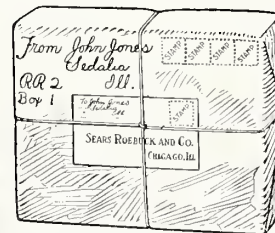 From John Jones
Sedalia
RR 2 Ill.
Box 1
STAMP STAMP STAMP STAMP
To John Jones
Sedalia
Ill
STAMP
SEARS ROEBUCK AND CO.
CHICAGO, ILL